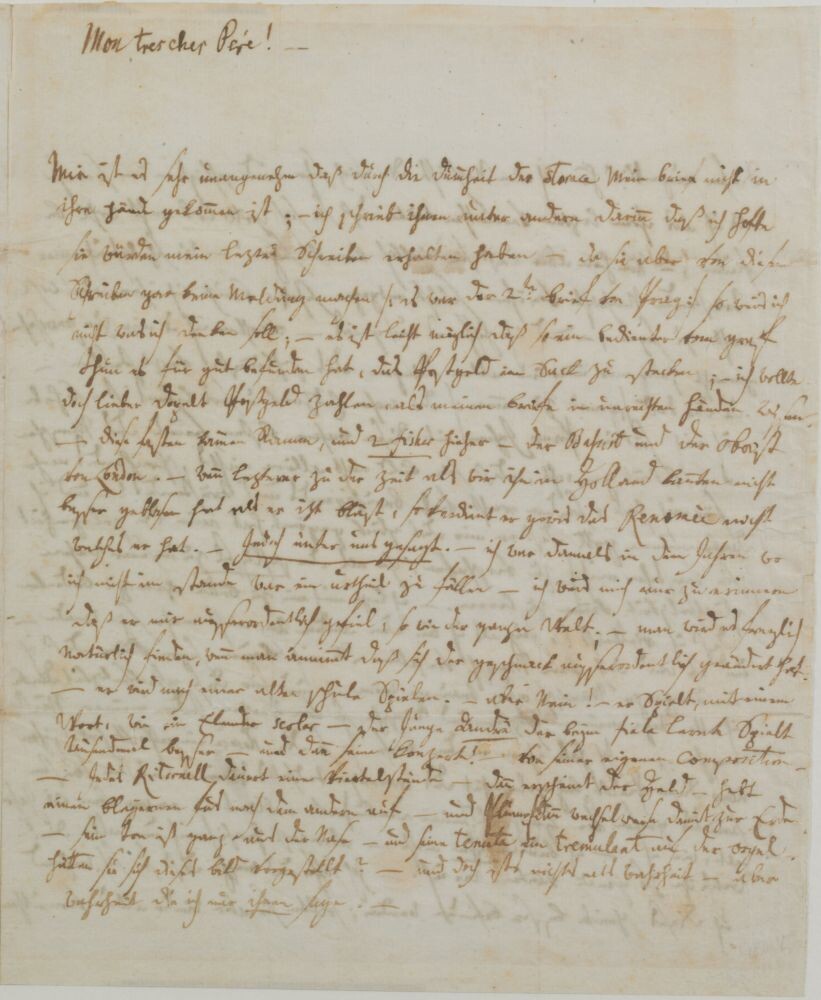 Mon tres cher Pére! —
Mir ist es sehr unangenehm daß durch die dumheit der Storace mein brief nicht in
ihre händ gekommen ist; — ich schrieb ihnen unter andern darinn, daß ich hofte
sie würden mein leztes Schreiben erhalten haben — da sie aber von diesen
Schreiben gar keine Meldung machen /: es war der 2:te brief von Prag :/ so weis ich
nicht was ich denken soll; — es ist leicht möglich daß so ein bedienter vom graf
Thun es für gut befunden hat, das Postgeld im Sack zu stecken; — ich wollte
doch lieber dopelt Postgeld zahlen, als meine briefe in unrechten händen wissen
— diese fasten kamen Ramm, und 2 fischer hieher — der Bassist und der oboist
von London. — wenn lezterer zu der Zeit als wir ihn in Holland kannten nicht
besser geblasen hat als er izt bläst, so verdient er gewis das Renomèe nicht
welches er hat. — Jedoch unter uns gesagt. — ich war damals in den Jahren wo
ich nicht im stande war ein urtheil zu fällen — ich weis mich nur zu erinnern
daß er mir ausserordentlich gefiel, so wie der ganzen Welt; — man wird es freylich
natürlich finden, wenn man annimmt daß sich der geschmack ausserordentlich geändert hat.
— er wird nach einer alten schule Spielen. — aber Nein! — er Spielt, mit einem
Wort, wie ein Elender scolar — der Junge André der beym fiala lernte Spielt
tausendmal besser — und dann seine Concerte! — von seiner eigenen composition —
— Jedes Ritornell dauert eine viertelstunde — dann erscheint der Held — hebt
einen bleyernen fus nach dem andern auf — und Plumpst dann wechselweise damit zur Erde
— sein Ton ist ganz aus der Nase — und seine tenuta ein tremulant auf der orgel.
hätten sie sich dieses bild vorgestellt? — und doch ists nichts als wahrheit — aber
wahrheit die ich nur ihnen sage. —